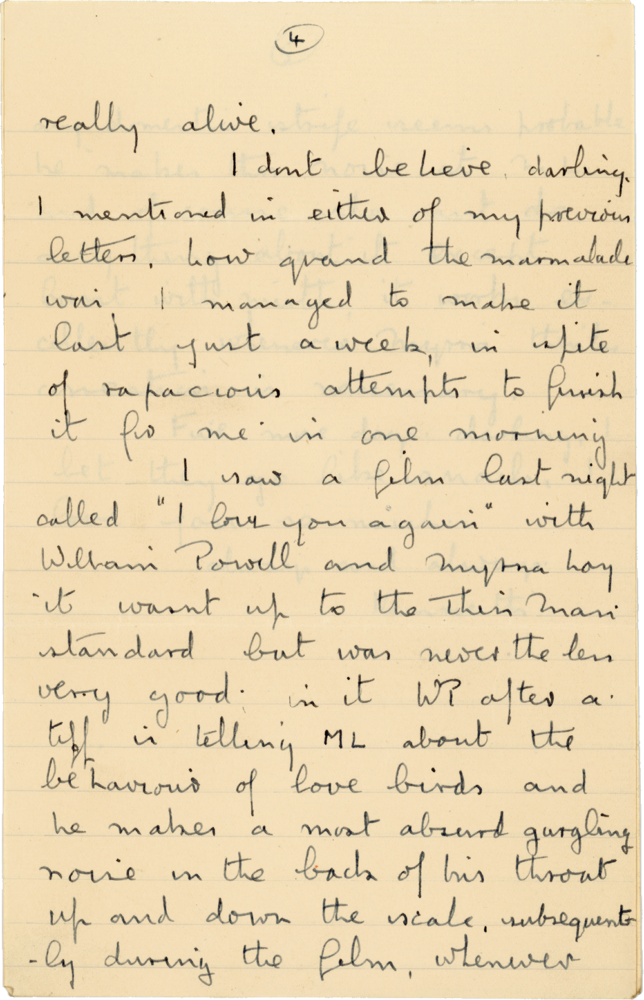 4
really alive.
I dont believe, darling,
I mentioned in either of my previous
letters, how grand the marmalade
was, I managed to make it
last just a week, in spite
of rapacious attempts to finish
it for me in one morning
I saw a film last night
called "I love you again" with
William Powell and Myrna Loy
it wasnt up to the Thin Man
standard but was never the less
very good; in it WP after a
tiff is telling ML about the
behaviour of love birds and
he makes a most absurd gurgling
noise in the back of his throat
up and down the scale, subsequent
-ly during the film, whenever